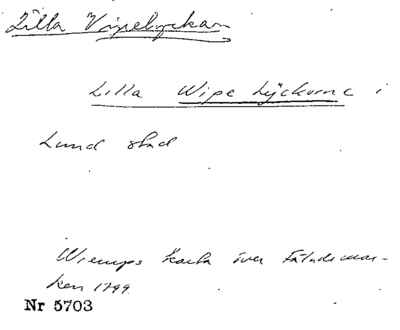 Lilla Vipelyckan
Lilla Wipe Lyckorne i
Lund stad
Wremps karta över Fäladsmar-
ken 1799.
Nr 5703